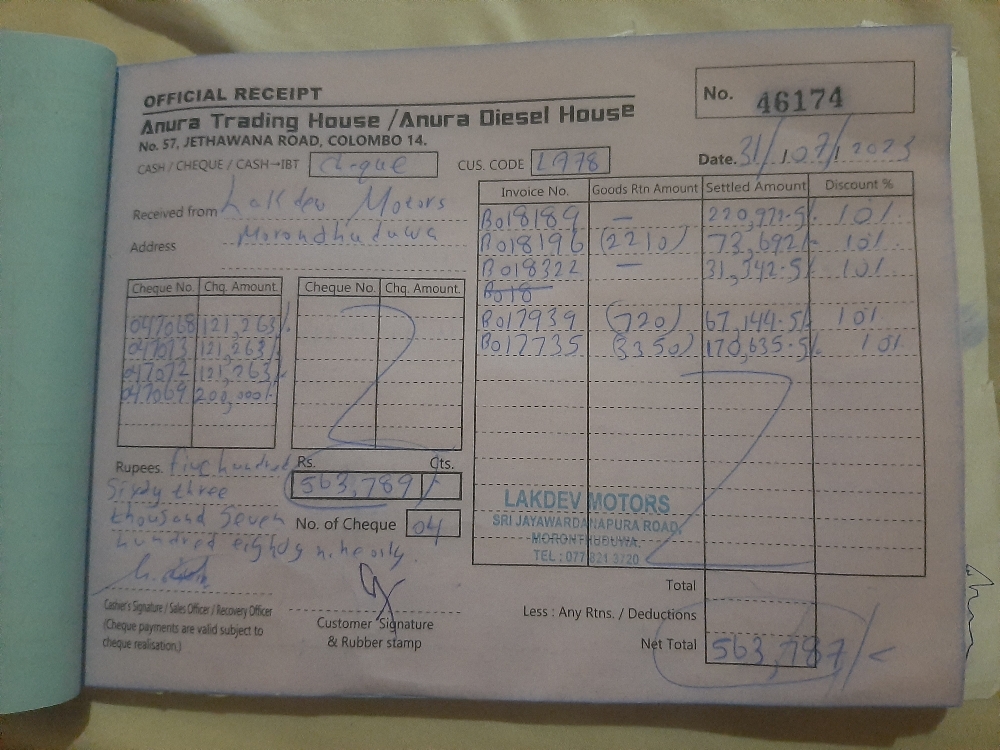 OFFICIAL RECEIPT
Anura Trading House /Anura Diesel House
No. 57, JETHAWANA ROAD, COLOMBO 14.
No. 46174
CASH / CHEQUE / CASH→IBT Cheque CUS. CODE L978 Date. 31/07/2023
Received from Lakdev Motors
Address Moronthuduwa
Cheque No. Chq. Amount.
047068 121,263/-
047073 121,263/-
047072 121,263/-
047069 200,000/-
Cheque No. Chq. Amount.
Invoice No. Goods Rtn Amount Settled Amount Discount %
B018189 — 220,971.5/- 10%
B018196 (2210) 73,692/- 10%
B018322 — 31,342.5/- 10%
B018
B017939 (720) 67,144.5/- 10%
B017735 (3350) 170,635.5/- 10%
Rupees. Five hundred
Sixdy three
thousand Seven
hundred eighdy nine only.
Rs. Cts.
563,789/-
No. of Cheque 04
LAKDEV MOTORS
SRI JAYAWARDANAPURA ROAD,
MORONTHUDUWA.
TEL : 077 821 3720
Cashier's Signature / Sales Officer / Recovery Officer
(Cheque payments are valid subject to
cheque realisation.)
Customer Signature
& Rubber stamp
Total
Less : Any Rtns. / Deductions
Net Total 563,787/-